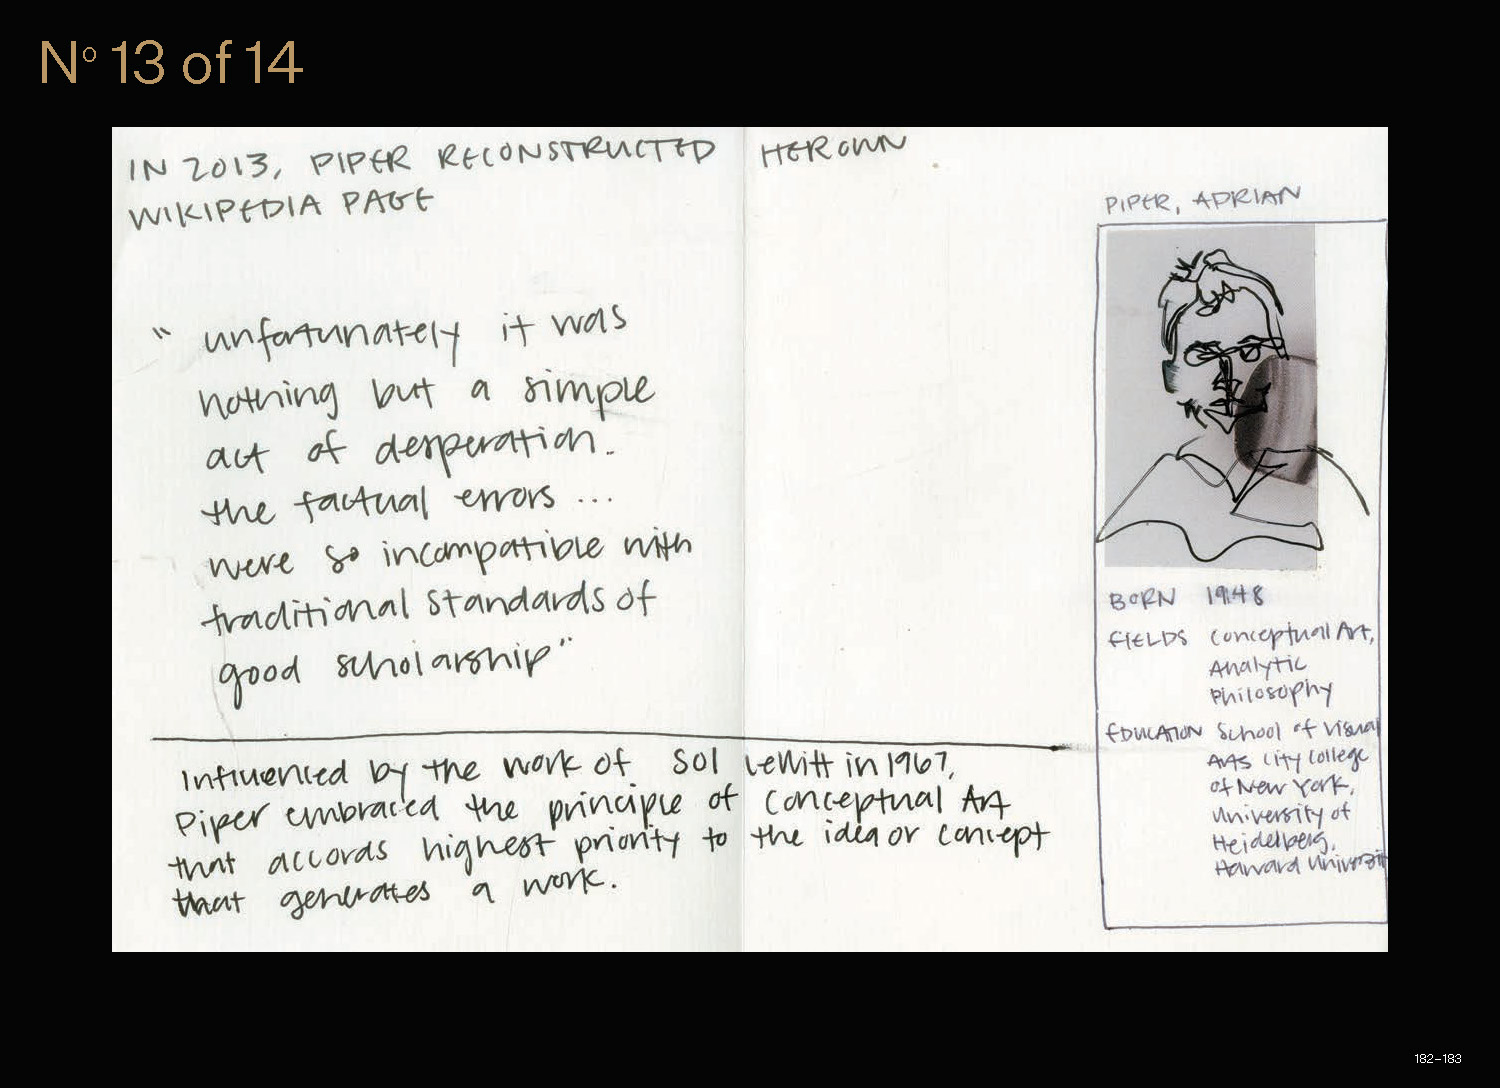 Nº 13 of 14
IN 2013, PIPER RECONSTRUCTED HER OWN
WIKIPEDIA PAGE
" unfortunately it was
nothing but a simple
act of desperation.
the factual errors ...
were so incompatible with
traditional standards of
good scholarship"
Influenced by the work of Sol LeWitt in 1967,
Piper embraced the principle of Conceptual Art
that accords highest priority to the idea or concept
that generates a work.
PIPER, ADRIAN
BORN 1948
FIELDS Conceptual Art,
Analytic
Philosophy
EDUCATION School of Visual
Arts City College
of New York,
University of
Heidelberg,
Harvard Universit
182–183